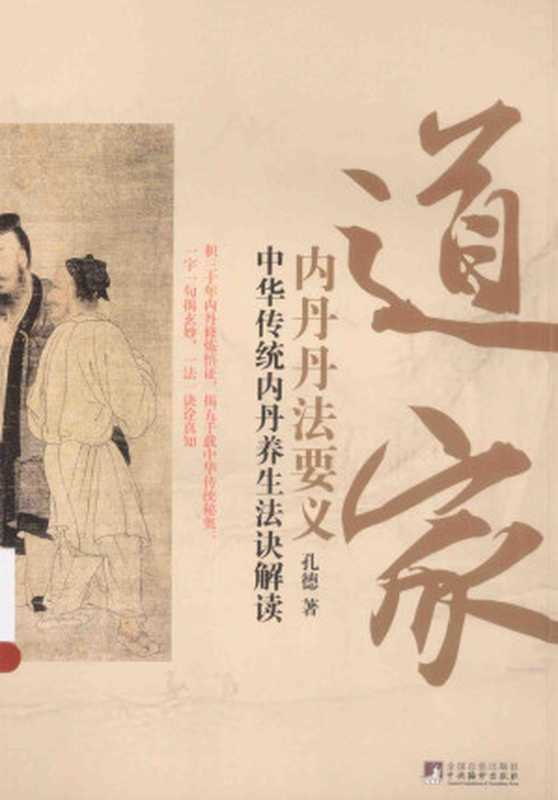 道家
内丹丹法要义
中华传统内丹养生法诀解读
孔德 著
积三十年内丹修炼悟证,揭五千载中华传统秘奥。
一字一句揭玄妙,一法一诀诠真知
全国百佳出版社
中央编译出版社